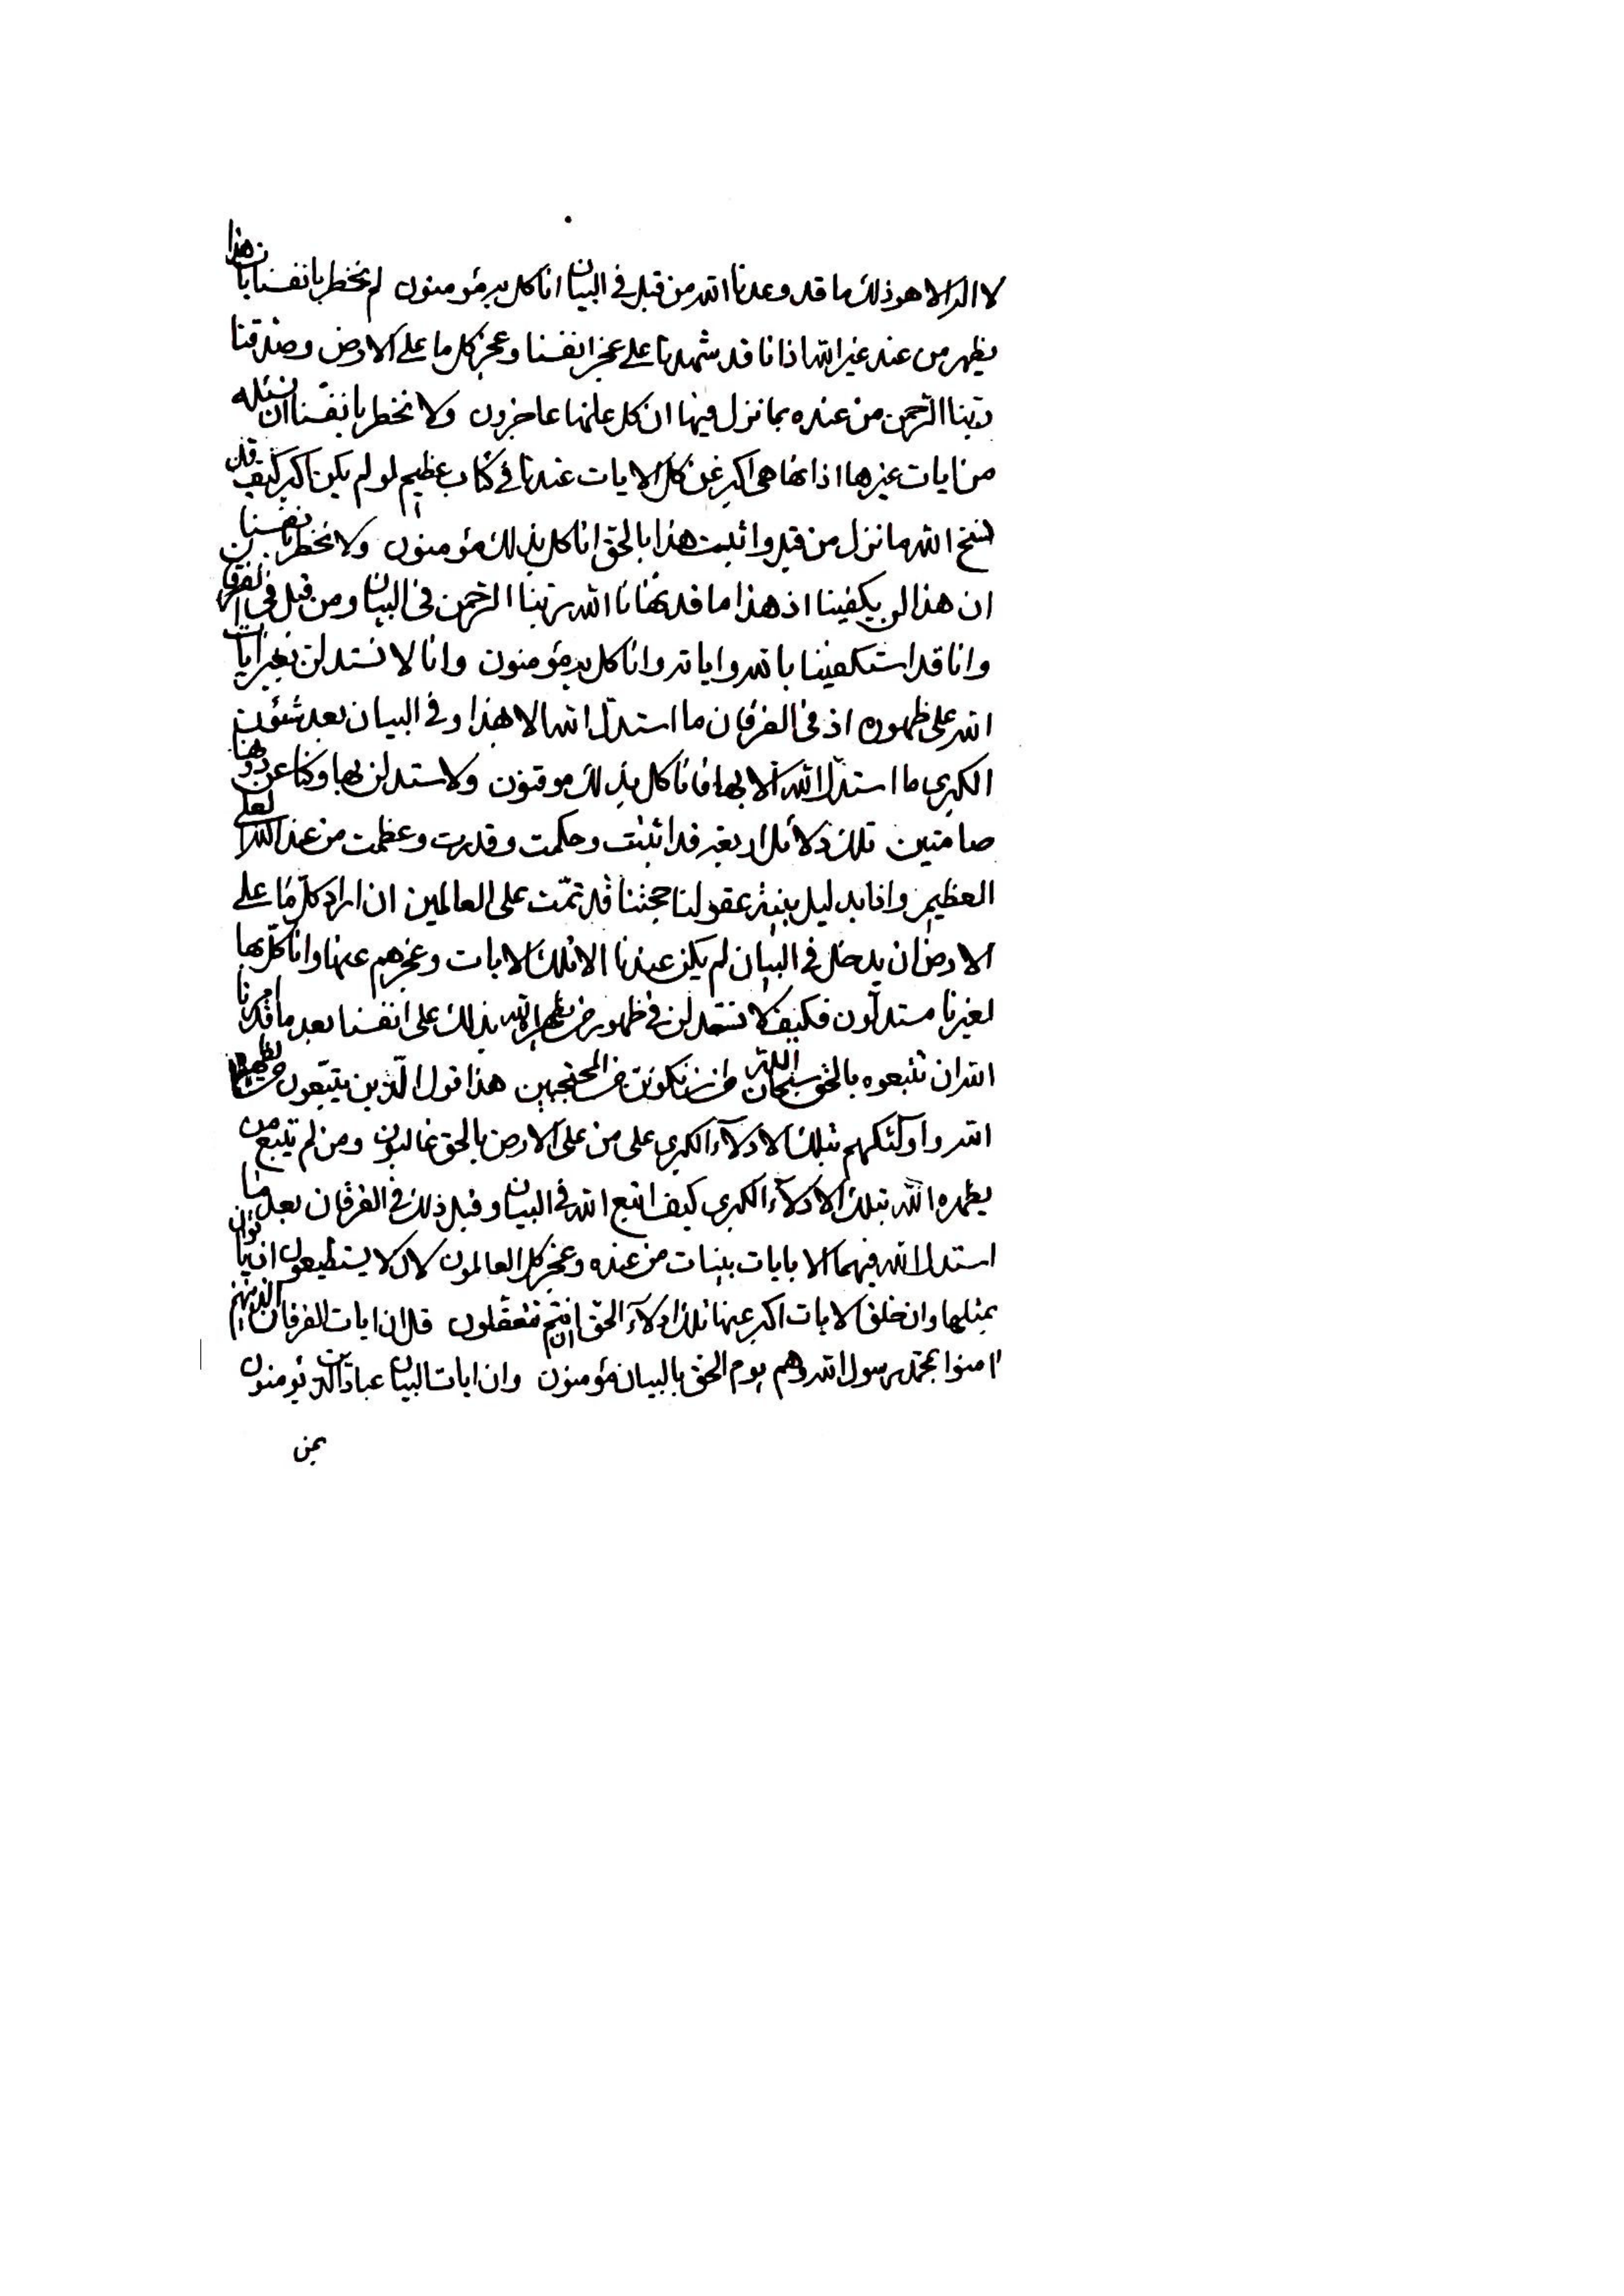 لا اله الا هو ذلك ما قد وعدنا الله من قبل في البيان انا كل به مؤمنون لم نخطر بانفسنا بان هذا
يظهر من عند غير الله اذ انا قد شهدنا على عجز انفسنا وعجز كل ما على الارض وصدقنا
ربنا الرحمن من عنده بما نزل فيها ان كل علنها عاجزون ولا نخطر بانفسنا ان نسئله
من ايات غيرها اذ انها هي اكبر عن كل الايات عندنا في كتاب عظيم لو لم يكن اكبر كيف قد
نسخ الله ما نزل من قبل واثبت هذا بالحق انا كل بذلك مؤمنون ولا نخطر بانفسنا
ان هذا لن يكفينا اذ هذا ما قد نهانا الله ربنا الرحمن في البيان ومن قبل في الفرقان
وانا قد استكفينا بالله واياته وانا كل به مؤمنون وانا لا نستدلن بغير ايات
الله على ظهوره اذ في الفرقان ما استدل الله الا بهذا وفي البيان بعد شئون
الكبرى ما استدل الله الا بها فانا كل بذلك موقنون ولاستدلن بها وكنا عن دونها
صامتين تلك دلائل اربعه قد اثبتت وحكمت وقدرت وعظمت من عند الله لعلي
العظيم وانا بدليل بينة عقولنا حجتنا قد تمت على العالمين ان اراد كل ما على
الارض ان يدخل في البيان لم يكن عندنا الا تلك الايات وعجزهم عنها وانا كل بها
لغيرنا مستدلون فكيف لا نستدلن في ظهور من يظهره الله بذلك على انفسنا بعد ما قد امرنا
الله ان نتبعوه بالحق سبحان الله من ان نكونن من المحتجبين هذا قول الذين يتبعون من يظهره
الله واولئكهم بتلك الادلاء الكبرى على من على الارض بالحق غالبون ومن لم يتبع من
يظهره الله بتلك الادلاء الكبرى كيف اتبع الله في البيان وقبل ذلك في الفرقان بعد ما
استدل الله فيهما الا بايات بينات من عنده وعجز كل العالمون لان لا يستطيعون ان ياتوا
بمثلها وان خلق الايات اكبر عنها تلك ادلاء الحق ان انتم تتعقلون قل ان ايات الفرقان الذينهم
امنوا بمحمد رسول الله وهم يوم الحق بالبيان مؤمنون وان ايات البيان عباد الذين يؤمنون
بمن